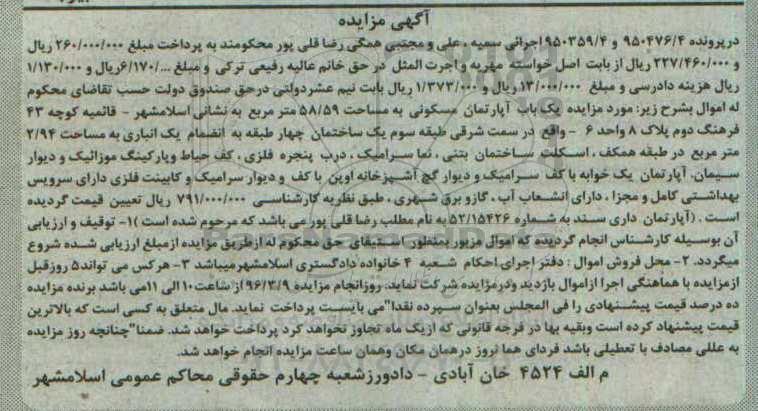 آگهی مزایده
درپرونده ۹۵۰۴۷۶/۴ و ۹۵۰۳۵۹/۴ اجرائی سمیه ، علی و مجتبی همگی رضا قلی پور محکومند به پرداخت مبلغ ۲۶۰/۰۰۰/۰۰۰ ریال
و ۲۲۷/۴۶۰/۰۰۰ ریال از بابت اصل خواسته مهریه و اجرت المثل در حق خانم عالیه رفیعی ترکی و مبلغ ۶/۱۷۰/۰۰۰ ریال و ۱/۱۳۰/۰۰۰
ریال هزینه دادرسی و مبلغ ۱۳/۰۰۰/۰۰۰ ریال و ۱/۳۷۳/۰۰۰ ریال بابت نیم عشردولتی درحق صندوق دولت حسب تقاضای محکوم
له اموال بشرح زیر: مورد مزایده یک باب آپارتمان مسکونی به مساحت ۵۸/۵۹ متر مربع به نشانی اسلامشهر - قائمیه کوچه ۴۳
فرهنگ دوم پلاک ۸ واحد ۶ - واقع در سمت شرقی طبقه سوم یک ساختمان چهار طبقه به انضمام یک انباری به مساحت ۲/۹۴
متر مربع در طبقه همکف ، اسکلت ساختمان بتنی ، نما سرامیک ، درب پنجره فلزی ، کف حیاط وپارکینگ موزائیک و دیوار
سیمان. آپارتمان یک خوابه با کف سرامیک و دیوار گچ آشپزخانه اوپن با کف و دیوار سرامیک و کابینت فلزی دارای سرویس
بهداشتی کامل و مجزا ، دارای انشعاب آب ، گازو برق شهری ، طبق نظریه کارشناسی ۷۹۱/۰۰۰/۰۰۰ ریال تعیین قیمت گردیده
است . (آپارتمان داری سند به شماره ۵۲/۱۵۴۲۶ به نام مطلب رضا قلی پور می باشد که مرحوم شده است )۱- توقیف و ارزیابی
آن بوسیله کارشناس انجام گردیده که اموال مزبور بمنظور استیفای حق محکوم له ازطریق مزایده ازمبلغ ارزیابی شده شروع
میگردد. ۲- محل فروش اموال : دفتر اجرای احکام شعبه ۴ خانواده دادگستری اسلامشهرمیباشد ۳- هرکس می تواند۵ روزقبل
ازمزایده با هماهنگی اجرا ازاموال بازدید ودرمزایده شرکت نماید. روزانجام مزایده ۹۶/۳/۹ از ساعت۱۰ الی ۱۱می باشد برنده مزایده
ده درصد قیمت پیشنهادی را فی المجلس بعنوان سپرده نقدا"می بایست پرداخت نماید. مال متعلق به کسی است که بالاترین
قیمت پیشنهاد کرده است وبقیه بها در فرجه قانونی که ازیک ماه تجاوز نخواهد کرد پرداخت خواهد شد. ضمنا"چنانچه روز مزایده
به عللی مصادف با تعطیلی باشد فردای هما نروز درهمان مکان وهمان ساعت مزایده انجام خواهد شد.
م الف ۴۵۲۴ خان آبادی - دادورزشعبه چهارم حقوقی محاکم عمومی اسلامشهر